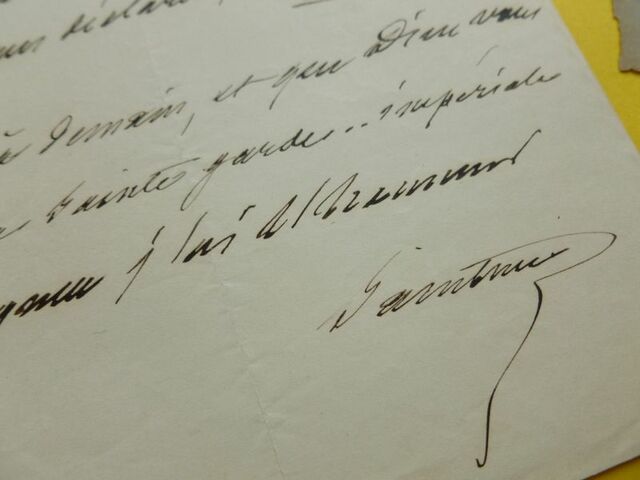 déclare
à demain, et que Dieu vous
sainte garde.. impériale
j'ai l'honneur
Saintine